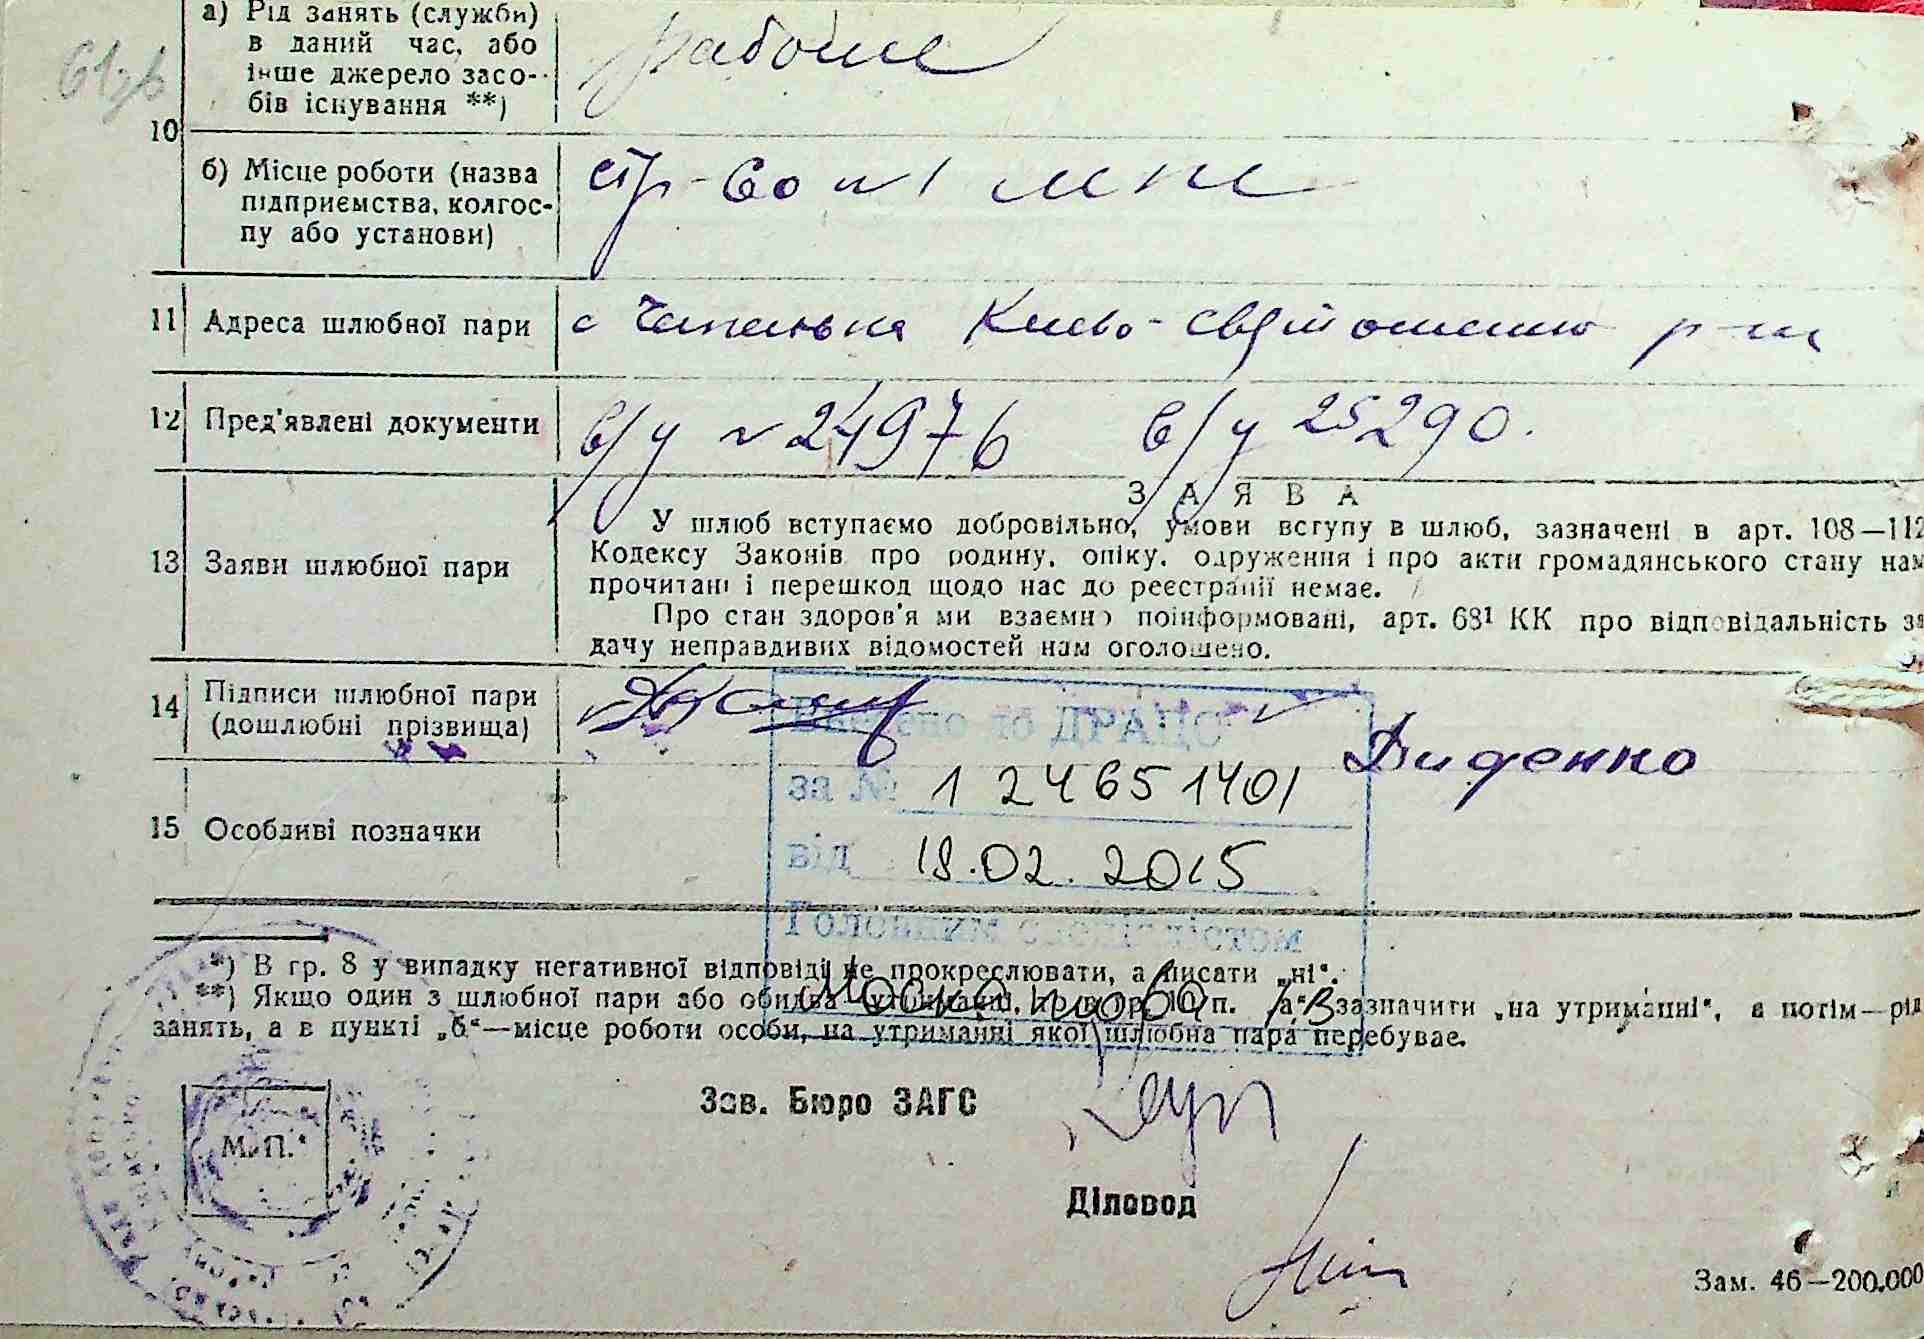 а) Рід занять (служби)
в даний час, або
інше джерело засо-
бів існування **)
рабочие
10
б) Місце роботи (назва
підприємства, колгос-
пу або установи)
стр-во №1
11 Адреса шлюбної пари
с Чапаевка Киево-Святошинского р-на
12 Пред'явлені документи
в/у № 24976 в/у 25290.
13 Заяви шлюбної пари
ЗАЯВА
У шлюб вступаємо добровільно, умови вступу в шлюб, зазначені в арт. 108—112
Кодексу Законів про родину, опіку, одруження і про акти громадянського стану нам
прочитані і перешкод щодо нас до реєстрації немає.
Про стан здоров'я ми взаємно поінформовані, арт. 68¹ КК про відповідальність за
дачу неправдивих відомостей нам оголошено.
14 Підписи шлюбної пари
(дошлюбні прізвища)
Диденко
Внесено до ДРАЦС
за № 124651401
15 Особливі позначки
від 18.02.2015
*) В гр. 8 у випадку негативної відповіді не прокреслювати, а писати „ні“.
**) Якщо один з шлюбної пари або обидва утриманні, то в гр. 10 п. „а“ зазначити „на утриманні“, а потім—рід
занять, а в пункті „б“—місце роботи особи, на утриманні якої шлюбна пара перебуває.
Зав. Бюро ЗАГС
М. П.
Діловод
Зам. 46—200.000